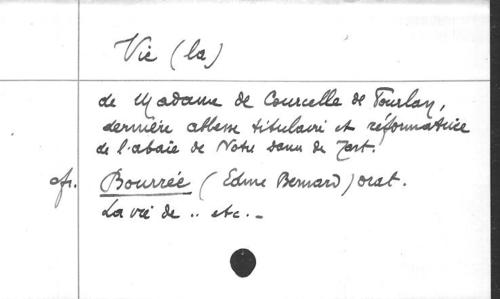 Vie (la)
de Madame de Courcelle de Pourlan,
dernière abbesse titulaire et réformatrice
de l'abaïe de Notre dame de Tart.
cfr. Bourrée (Edme Bernard) orat.
La vie de .. etc. -